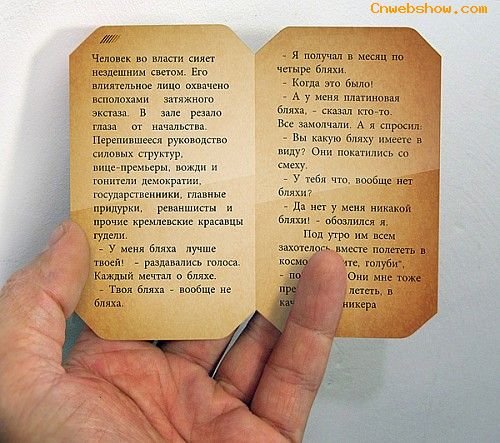 Cnwebshow.com
Человек во власти сияет
нездешним светом. Его
влиятельное лицо охвачено
всполохами затяжного
экстаза. В зале резало
глаза от начальства.
Перепившееся руководство
силовых структур,
вице-премьеры, вожди и
гонители демократии,
государственники, главные
придурки, реваншисты и
прочие кремлевские красавцы
гудели.
- У меня бляха лучше
твоей! - раздавались голоса.
Каждый мечтал о бляхе.
- Твоя бляха - вообще не
бляха.
- Я получал в месяц по
четыре бляхи.
- Когда это было!
- А у меня платиновая
бляха, - сказал кто-то.
Все замолчали. А я спросил:
- Вы какую бляху имеете в
виду? Они покатились со
смеху.
- У тебя что, вообще нет
бляхи?
- Да нет у меня никакой
бляхи! - обозлился я.
Под утро им всем
захотелось вместе полететь в
голуби",
- Они мне тоже
лететь, в